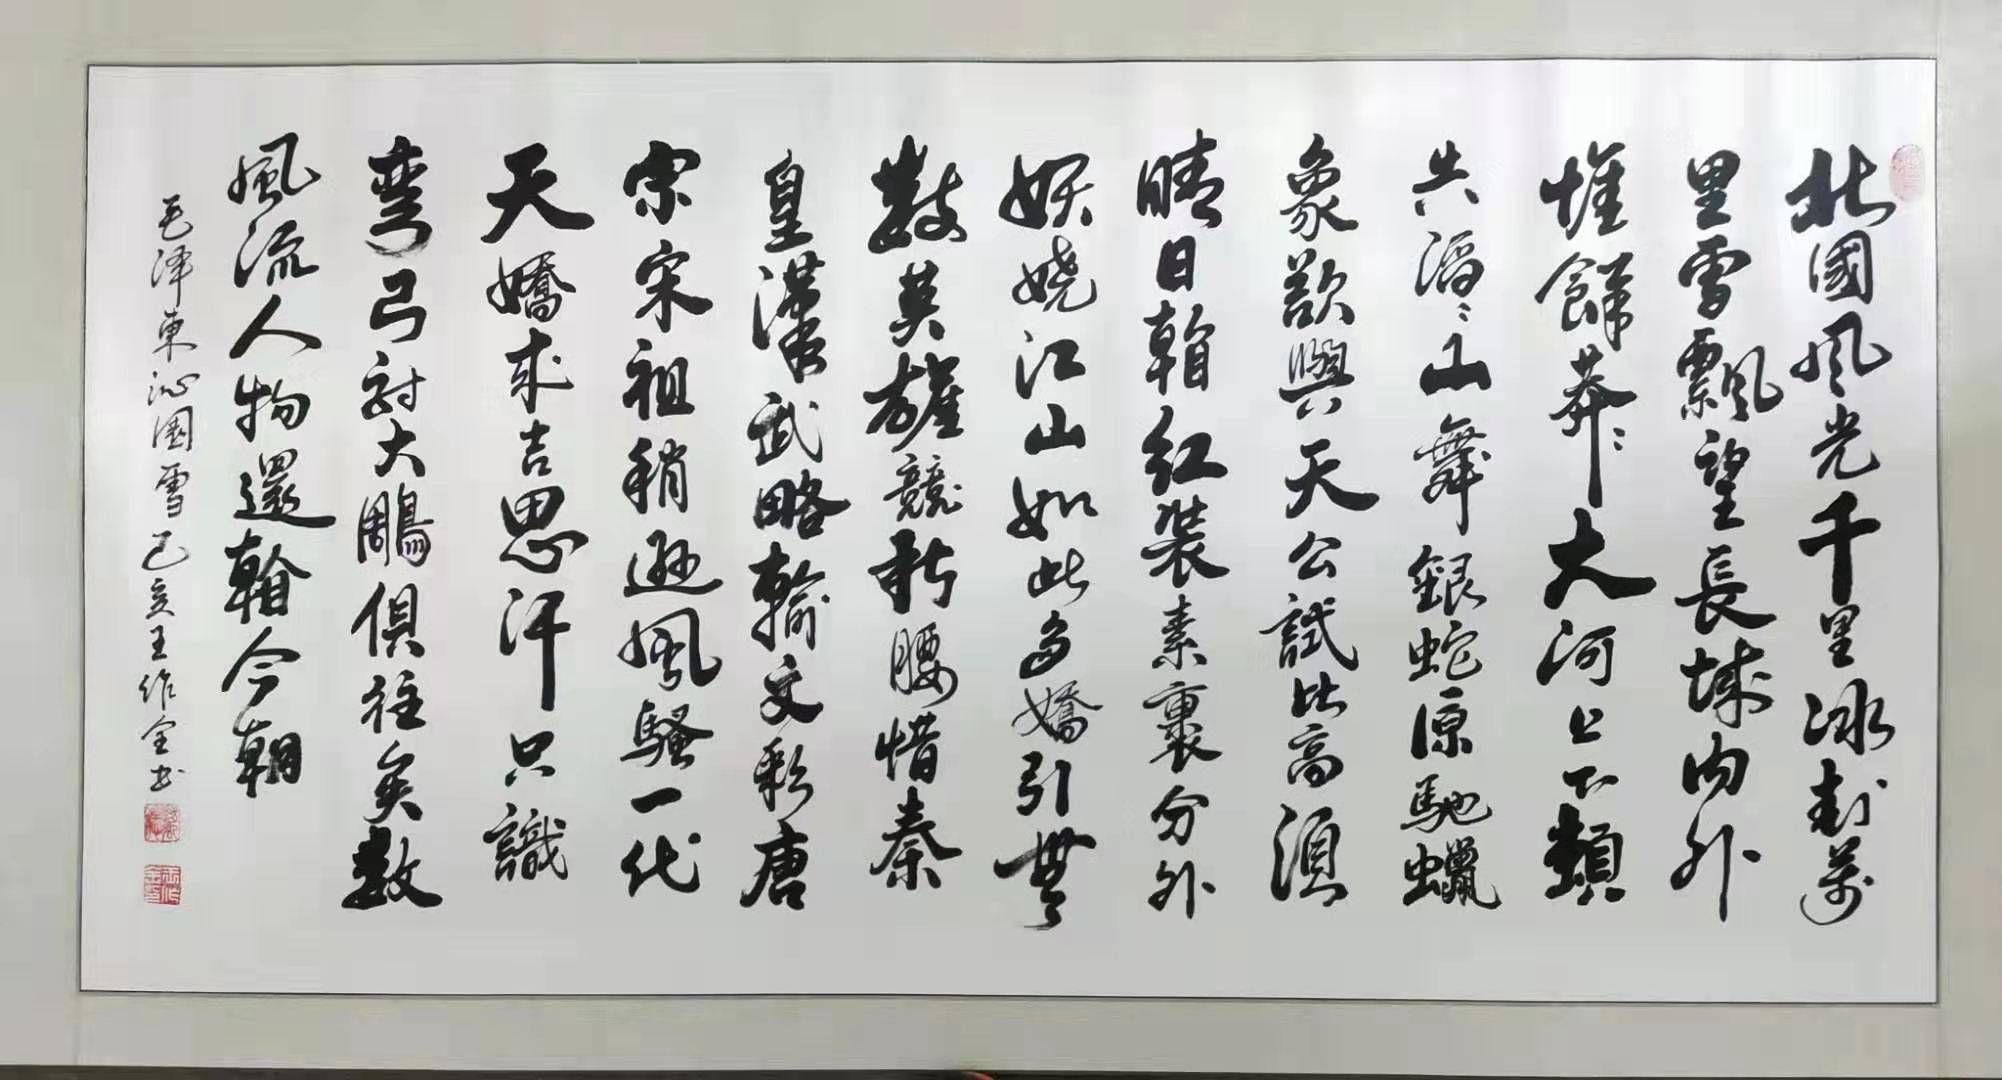 北國風光千里冰封萬
里雪飄望長城内外
惟餘莽〻大河上下頓
失滔〻山舞銀蛇原馳蠟
象欲與天公試比高須
晴日看紅裝素裹分外
妖嬈江山如此多嬌引無
數英雄競折腰惜秦
皇漢武略輸文彩唐
宗宋祖稍遜風騷一代
天嬌成吉思汗只識
弯弓射大鵰俱往矣數
風流人物還看今朝
毛泽東沁園雪己亥王作全书